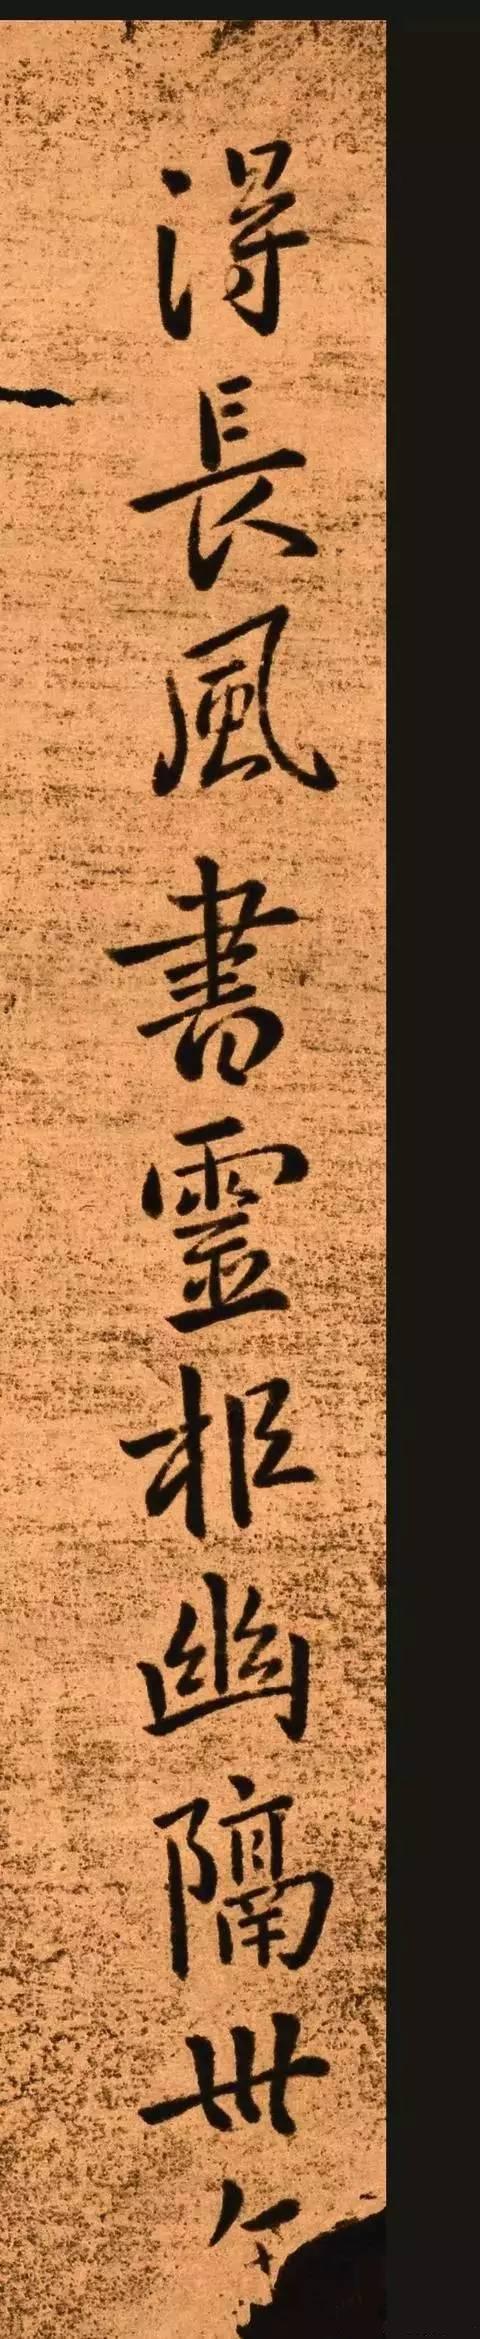 得長風書靈柩幽隔卅